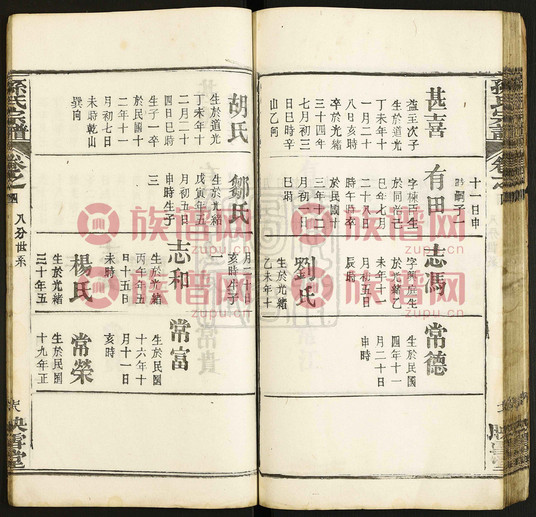 孫氏宗譜
卷之四
甚喜
益至次子
生於道光
丁未年十
一月二十
八日亥時
卒於光緒
三十四年
七月初三
日巳時辛
山乙向
十一日申
時嗣子一
有田
字棟玉生
於同治己
巳年七月
二十八日
時午時卒
於民國十
三年十二
月初一日
巳時
志馮
於光緒乙
未年十
月初五日
辰時
劉氏
生於光緒
乙未年十
常德
生於民國
四年十一
月二十日
申時
胡氏
生於道光
丁未年十
二月二十
四日巳時
生子一卒
於民國十
二年十一
月初七日
未時乾山
巽向
鄒氏
戊寅年五
月初五日
申時生子
三
月二
亥時生子
一
志和
生於光緒
丙午年五
日十五日
未時
楊氏
生於光緒
三十年五
常富
生於民國
十六年十
月十一日
亥時
常榮
生於民國
十九年正
孫氏宗譜
卷之四
八分世系
映雪堂
族谱网
zupu.cn